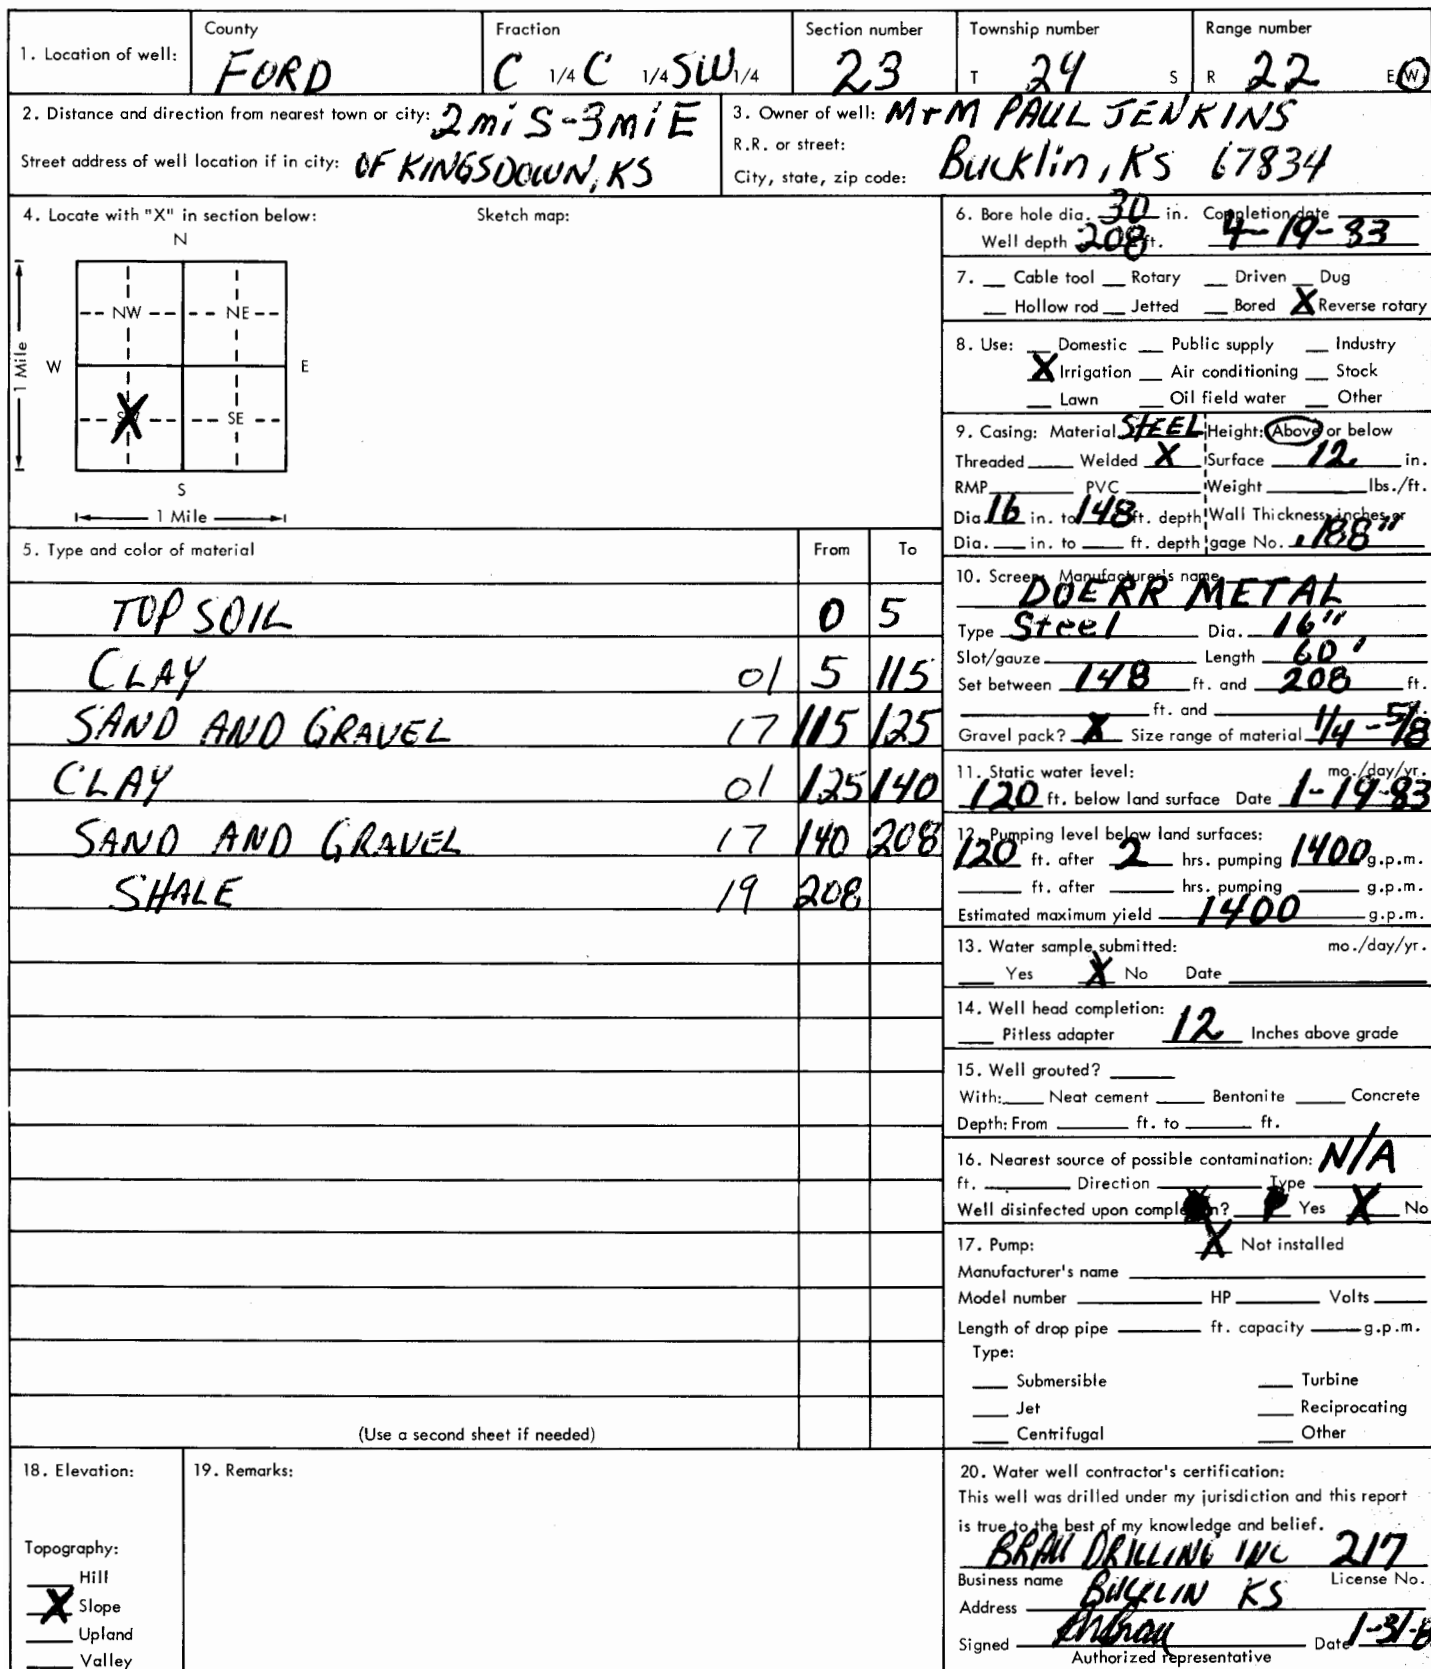 1. Location of well: County FORD Fraction C 1/4 C 1/4 SW 1/4 Section number 23 Township number T 24 S Range number R 22 E W
2. Distance and direction from nearest town or city: 2 mi S-3 mi E
Street address of well location if in city: OF KINGSDOWN, KS
3. Owner of well: M+M PAUL JENKINS
R.R. or street:
City, state, zip code: Bucklin, KS 67834
4. Locate with "X" in section below: Sketch map:
N
NW NE
W E
1 Mile
X SE
S
1 Mile
5. Type and color of material From To
TOP SOIL 0 5
CLAY 01 5 115
SAND AND GRAVEL 17 115 125
CLAY 01 125 140
SAND AND GRAVEL 17 140 208
SHALE 19 208
(Use a second sheet if needed)
6. Bore hole dia. 30 in. Completion date
Well depth 208 ft. 4-19-83
7. Cable tool Rotary Driven Dug
Hollow rod Jetted Bored X Reverse rotary
8. Use: Domestic Public supply Industry
X Irrigation Air conditioning Stock
Lawn Oil field water Other
9. Casing: Material STEEL Height: Above or below
Threaded Welded X Surface 12 in.
RMP PVC Weight lbs./ft.
Dia. 16 in. to 148 ft. depth Wall Thickness: inches or
Dia. in. to ft. depth gage No. .188"
10. Screen: Manufacturer's name
DOERR METAL
Type Steel Dia. 16"
Slot/gauze Length 60'
Set between 148 ft. and 208 ft.
ft. and ft.
Gravel pack? X Size range of material 1/4 - 5/8
11. Static water level: mo./day/yr.
120 ft. below land surface Date 1-19-83
12. Pumping level below land surfaces:
120 ft. after 2 hrs. pumping 1400 g.p.m.
ft. after hrs. pumping g.p.m.
Estimated maximum yield 1400 g.p.m.
13. Water sample submitted: mo./day/yr.
Yes X No Date
14. Well head completion:
Pitless adapter 12 Inches above grade
15. Well grouted?
With: Neat cement Bentonite Concrete
Depth: From ft. to ft.
16. Nearest source of possible contamination: N/A
ft. Direction Type
Well disinfected upon completion? Yes X No
17. Pump: X Not installed
Manufacturer's name
Model number HP Volts
Length of drop pipe ft. capacity g.p.m.
Type:
Submersible Turbine
Jet Reciprocating
Centrifugal Other
18. Elevation:
Topography:
Hill
X Slope
Upland
Valley
19. Remarks:
20. Water well contractor's certification:
This well was drilled under my jurisdiction and this report
is true to the best of my knowledge and belief.
DRILLING INC 217
Business name License No.
Address BUCKLIN KS
Signed Date 1-31-8
Authorized representative